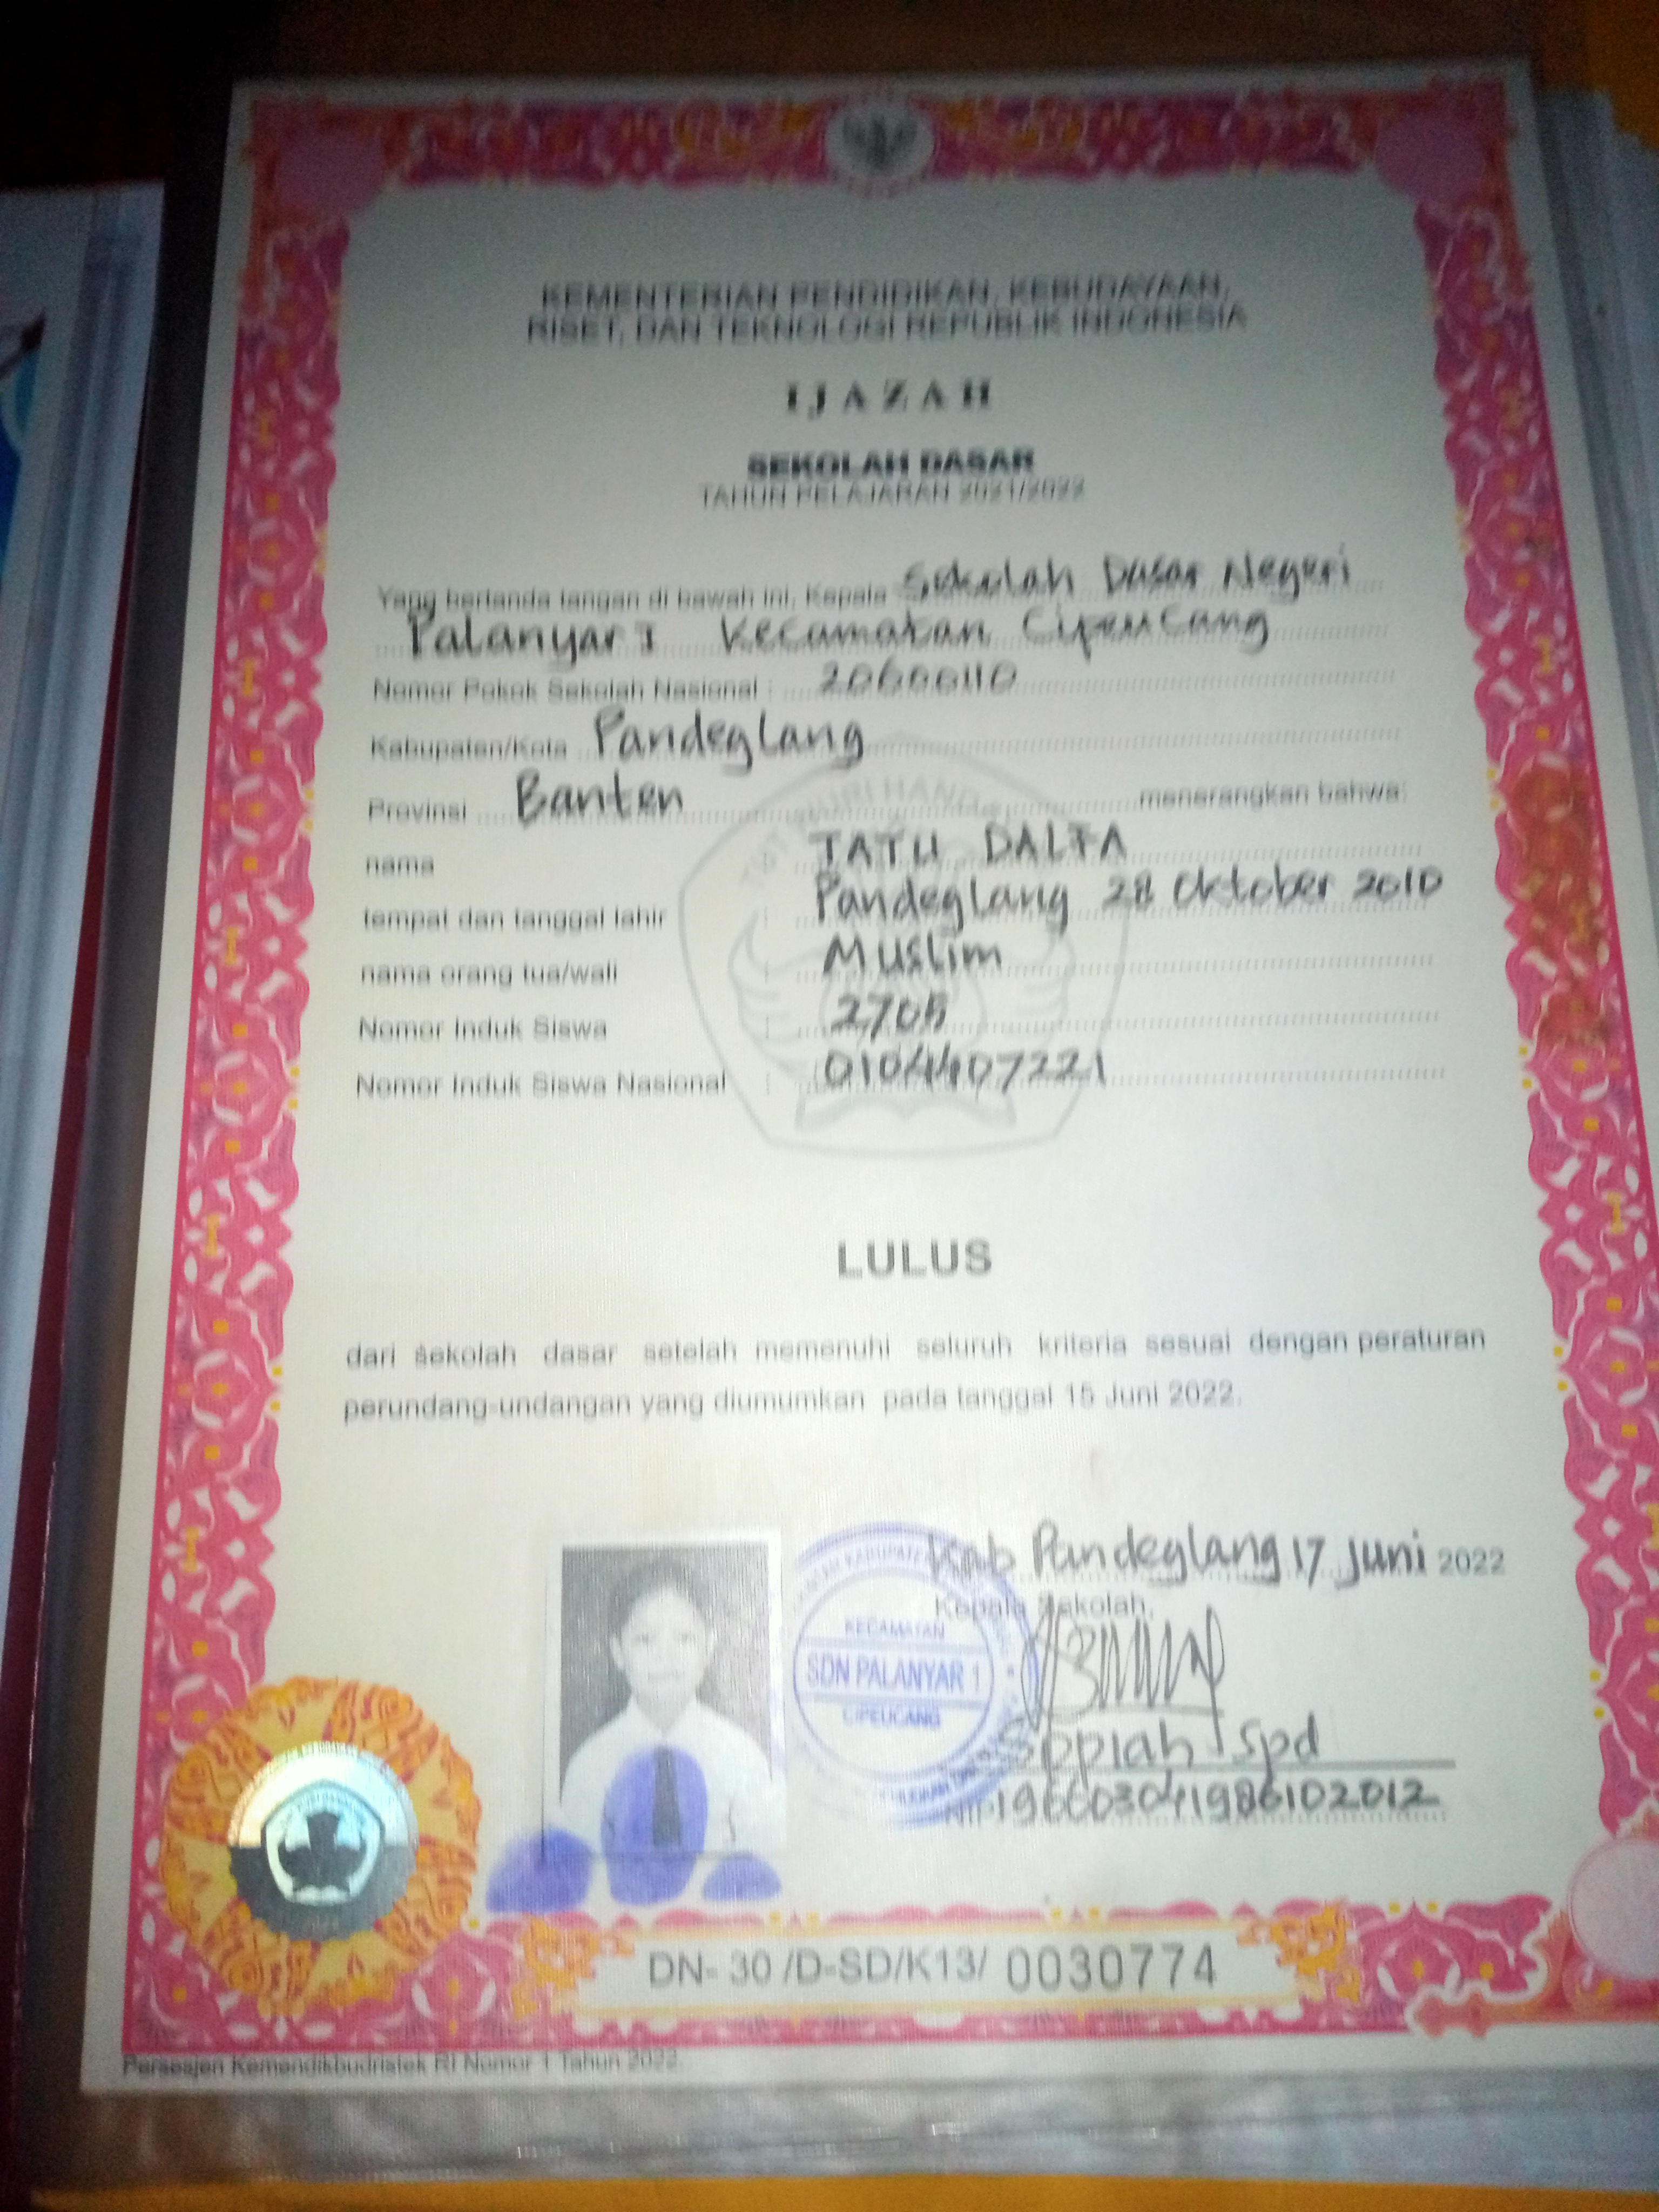 KEMENTERIAN PENDIDIKAN, KEBUDAYAAN,
RISET, DAN TEKNOLOGI REPUBLIK INDONESIA
IJAZAH
SEKOLAH DASAR
TAHUN PELAJARAN 2021/2022
Yang bertanda tangan di bawah ini, Kepala Sekolah Dasar Negeri
Palanyar I Kecamatan Cipeucang
Nomor Pokok Sekolah Nasional : 20600110
Kabupaten/Kota Pandeglang
Provinsi Banten menerangkan bahwa:
nama : TATU DALFA
tempat dan tanggal lahir : Pandeglang 28 Oktober 2010
nama orang tua/wali : Muslim
Nomor Induk Siswa : 2705
Nomor Induk Siswa Nasional : 0104407221
LULUS
dari sekolah dasar setelah memenuhi seluruh kriteria sesuai dengan peraturan
perundang-undangan yang diumumkan pada tanggal 15 Juni 2022.
Kab Pandeglang 17 Juni 2022
Kepala Sekolah,
KECAMATAN
SDN PALANYAR 1
CIPEUCANG
Spd
NIP 196603041986102012
DN- 30 /D-SD/K13/ 0030774
Persesjen Kemendikbudristek RI Nomor 1 Tahun 2022